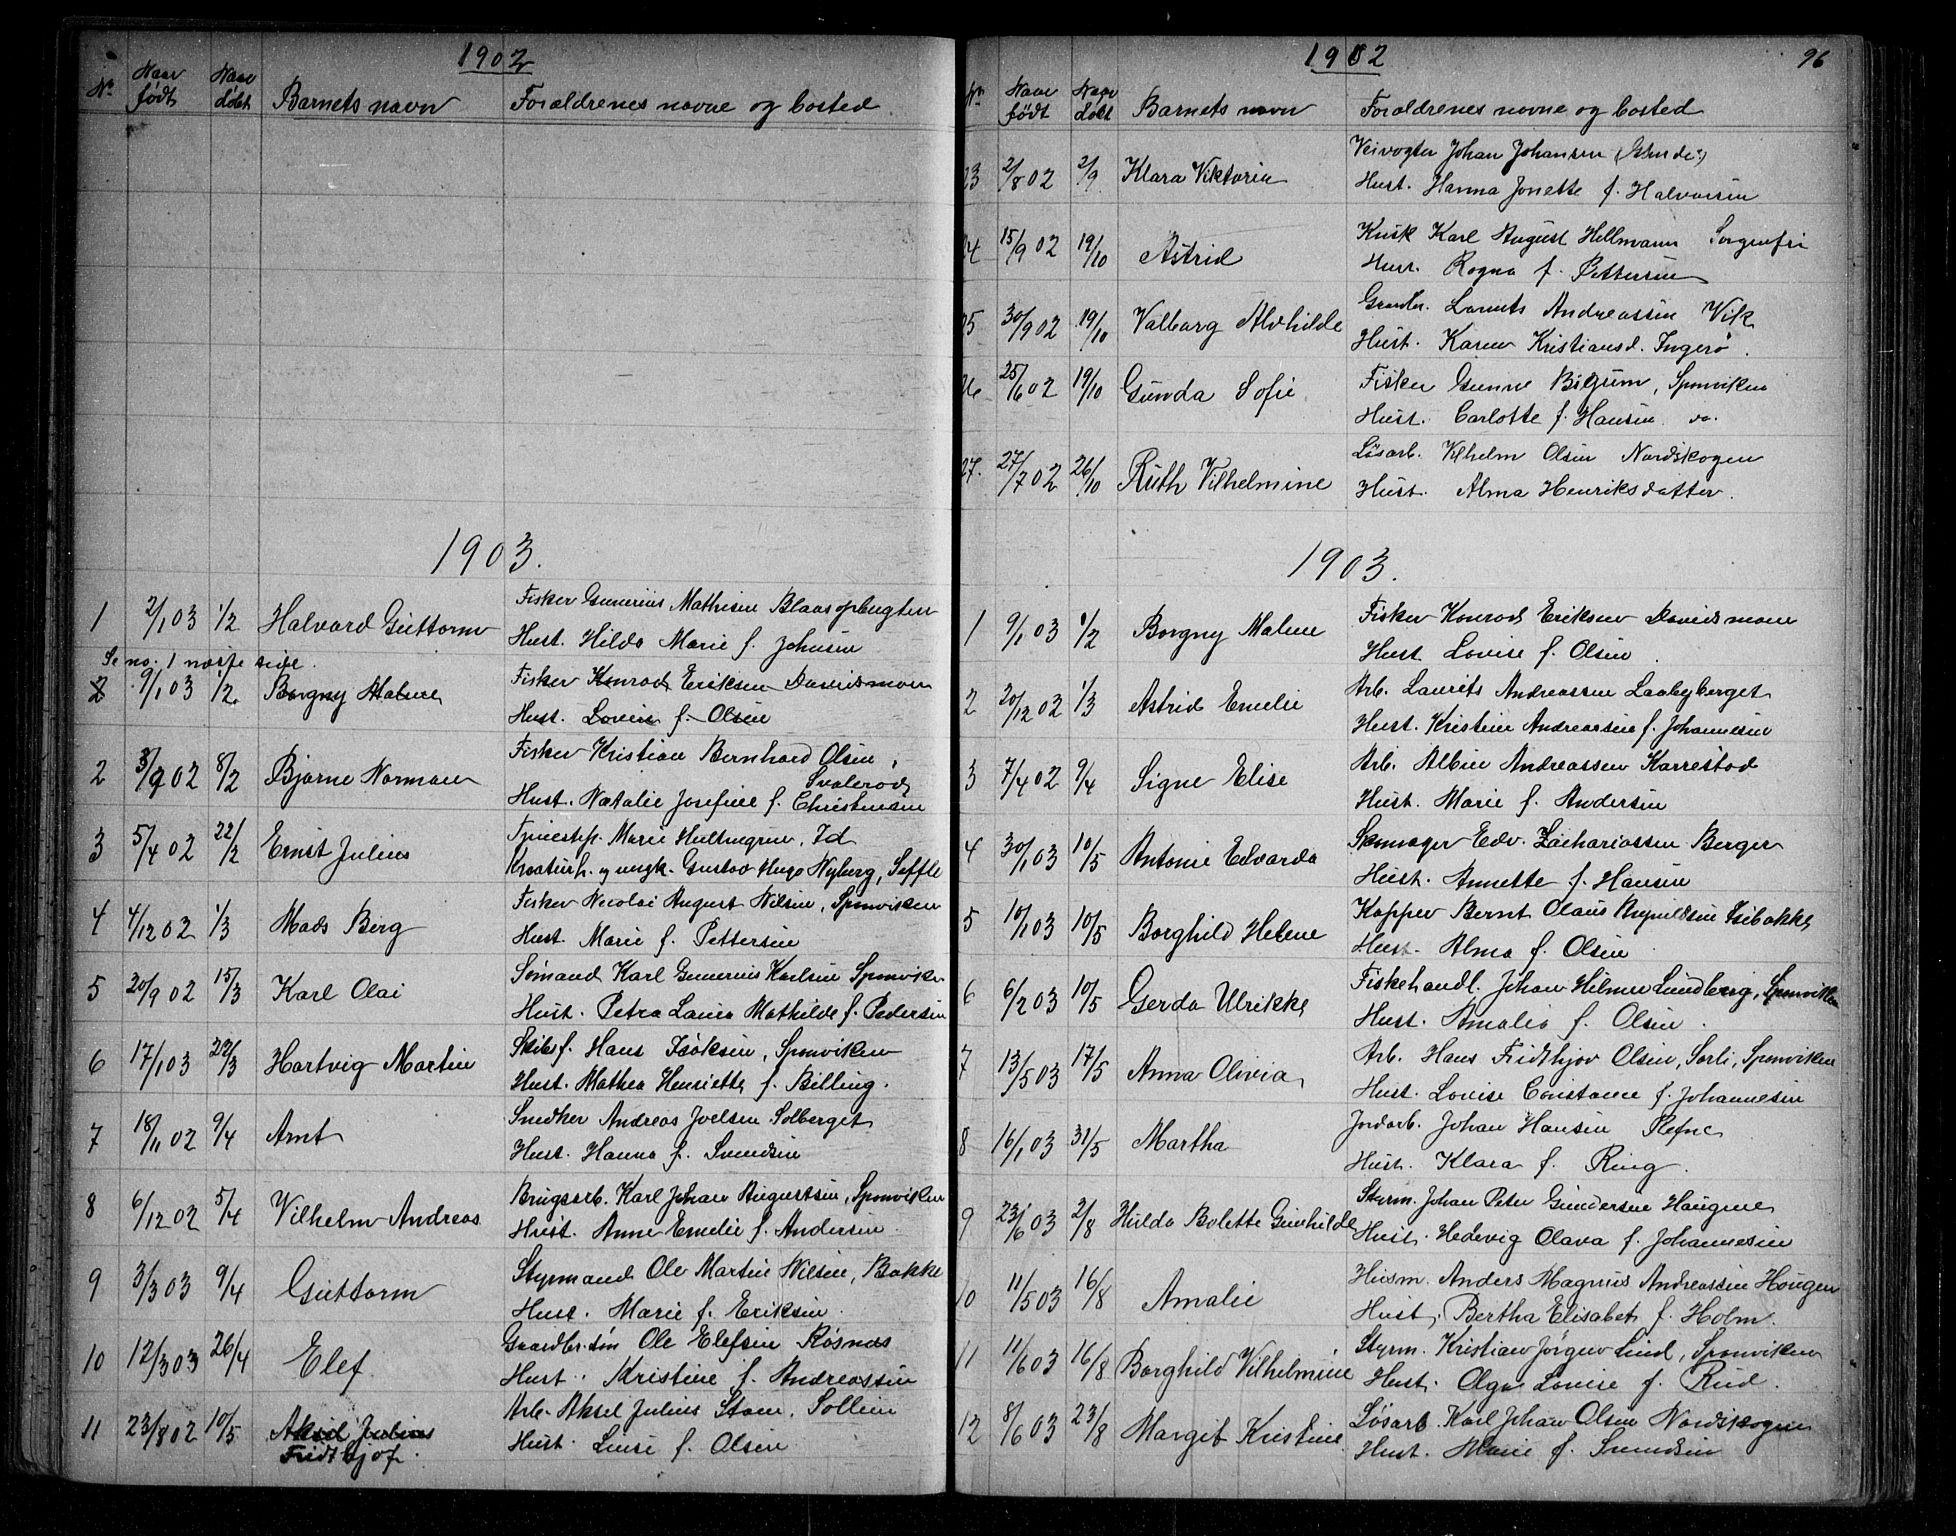 1902
No Naar født Naar døbt Barnets navn Forældrenes navne og bosted
1903.
1 2/1 03 1/2 Halvard Guttorm Fisker Gunerius Mathisen Blaasopbugten
Hust. Hilda Marie f. Johnsen
Se no. 1 næste side.
2 9/1 03 1/2 Borgny Malene Fisker Konrad Eriksen Davidsmoen
Hust. Lovise f. Olsen
2 3/9 02 8/2 Bjarne Norman Fisker Kristian Bernhard Olsen,
Svalerød
Hust. Natalie Josefine f. Christensen
3 5/4 02 22/2 Ernst Julius Tjenestep. Marie Hultengren, Id
Kreaturh. ungk. Gustav Hugo Nyberg, Seffle
4 4/12 02 1/3 Mads Berg Fisker Nicolai August Nilsen, Sponviken
Hust. Marie f. Pettersen
5 20/9 02 15/3 Karl Olai Sømand Karl Gunerius Karlsen Sponviken
Hust. Petra Laura Mathilde f. Pedersen
6 17/1 03 22/3 Hartvig Martin Skibsf. Hans Isaksen, Sponviken
Hust. Mathea Henriette f. Billing.
7 18/11 02 9/4 Arnt Snedker Andreas Joelsen Solberget
Hust. Hanna f. Svendsen
8 6/12 02 5/4 Vilhelm Andreas Brugsarb. Karl Johan Augustsen, Sponviken
Hust. Anne Emelie f. Andersen
9 3/3 03 9/4 Guttorm Styrmand Ole Martin Nilsen, Bakke
Hust. Marie f. Eriksen.
10 12/3 03 26/4 Elef. Gaardbr. søn Ole Elefsen Røsnæs
Hust. Kristine f. Andreassen
11 23/8 02 10/5 Aksel Julius Arb. Aksel Julius Stam, Sollien
Fridthjof. Hust. Lusie f. Olsen
1902 96
No Naar født Naar døbt Barnets navn Forældrenes navne og bosted
23 2/8 02 2/9 Klara Viktoria Veivogter Johan Johansen
Hust. Hanna Jonette f. Halvorsen
24 15/9 02 19/10 Astrid Kusk Karl August Hellmann Sorgenfri
Hust. Ragna f. Pettersen
25 30/9 02 19/10 Valborg Alvhilde Gaardbr. Laurits Andreassen Vik
Hust. Karen Kristiansd. Ingerø.
26 25/6 02 19/10 Gunda Sofie Fisker Gunne Bigum, Sponviken
Hust. Carlotte f. Hansen do.
27. 27/7 02 26/10 Ruth Vilhelmine Løsarb. Vilhelm Olsen Nordskogen
Hust. Alma Henriksdatter.
1903.
1 9/1 03 1/2 Borgny Malene Fisker Konrad Eriksen Davidsmoen
Hust Lovise f. Olsen.
2 20/12 02 1/3 Astrid Emelie Arb. Laurits Andreassen Laabyberget
Hust. Kristine Andreassen f. Johannesen
3 7/4 02 9/4 Signe Elise Arb. Albin Andreassen Karrestad
Hust. Marie f. Andersen
4 30/1 03 10/5 Antonie Edvarda Skomager Edv. Zachariassen Berger
Hust. Annette f. Hansen
5 10/1 03 10/5 Borghild Helene Kapper Bernt Olaus Isebakke
Hust. Alma f. Olsen
6 6/2 03 10/5 Gerda Ulrikke Fiskehandl. Johan Hilmer Lundberg, Sponviken
Hust. Amalia f. Olsen.
7 13/5 03 17/5 Anna Olivia Arb. Hans Fridthjov Olsen, Sorli, Sponviken
Hust. Lovise Constance f. Johannesen
8 16/1 03 31/5 Martha Jordarb. Johan Hansen Refne
Hust. Klara f. Ring.
9 23/6 03 2/8 Hulda Bolette Gunhilde Styrm. Johan Peter Gundersen Haugene
Hust. Hedevig Olava f. Johannesen
10 11/5 03 16/8 Amalie Husm. Anders Magnus Andreassen Hougen
Hust. Bertha Elisabet f. Holm.
11 11/6 03 16/8 Borghild Vilhelmine Styrm. Kristian Jørgen Lind, Sponviken
Hust. Olga Lovise f. Rud.
12 8/6 03 23/8 Margit Kristine Løsarb. Karl Johan Olsen Nordskogen
Hust. Marie f. Svendsen